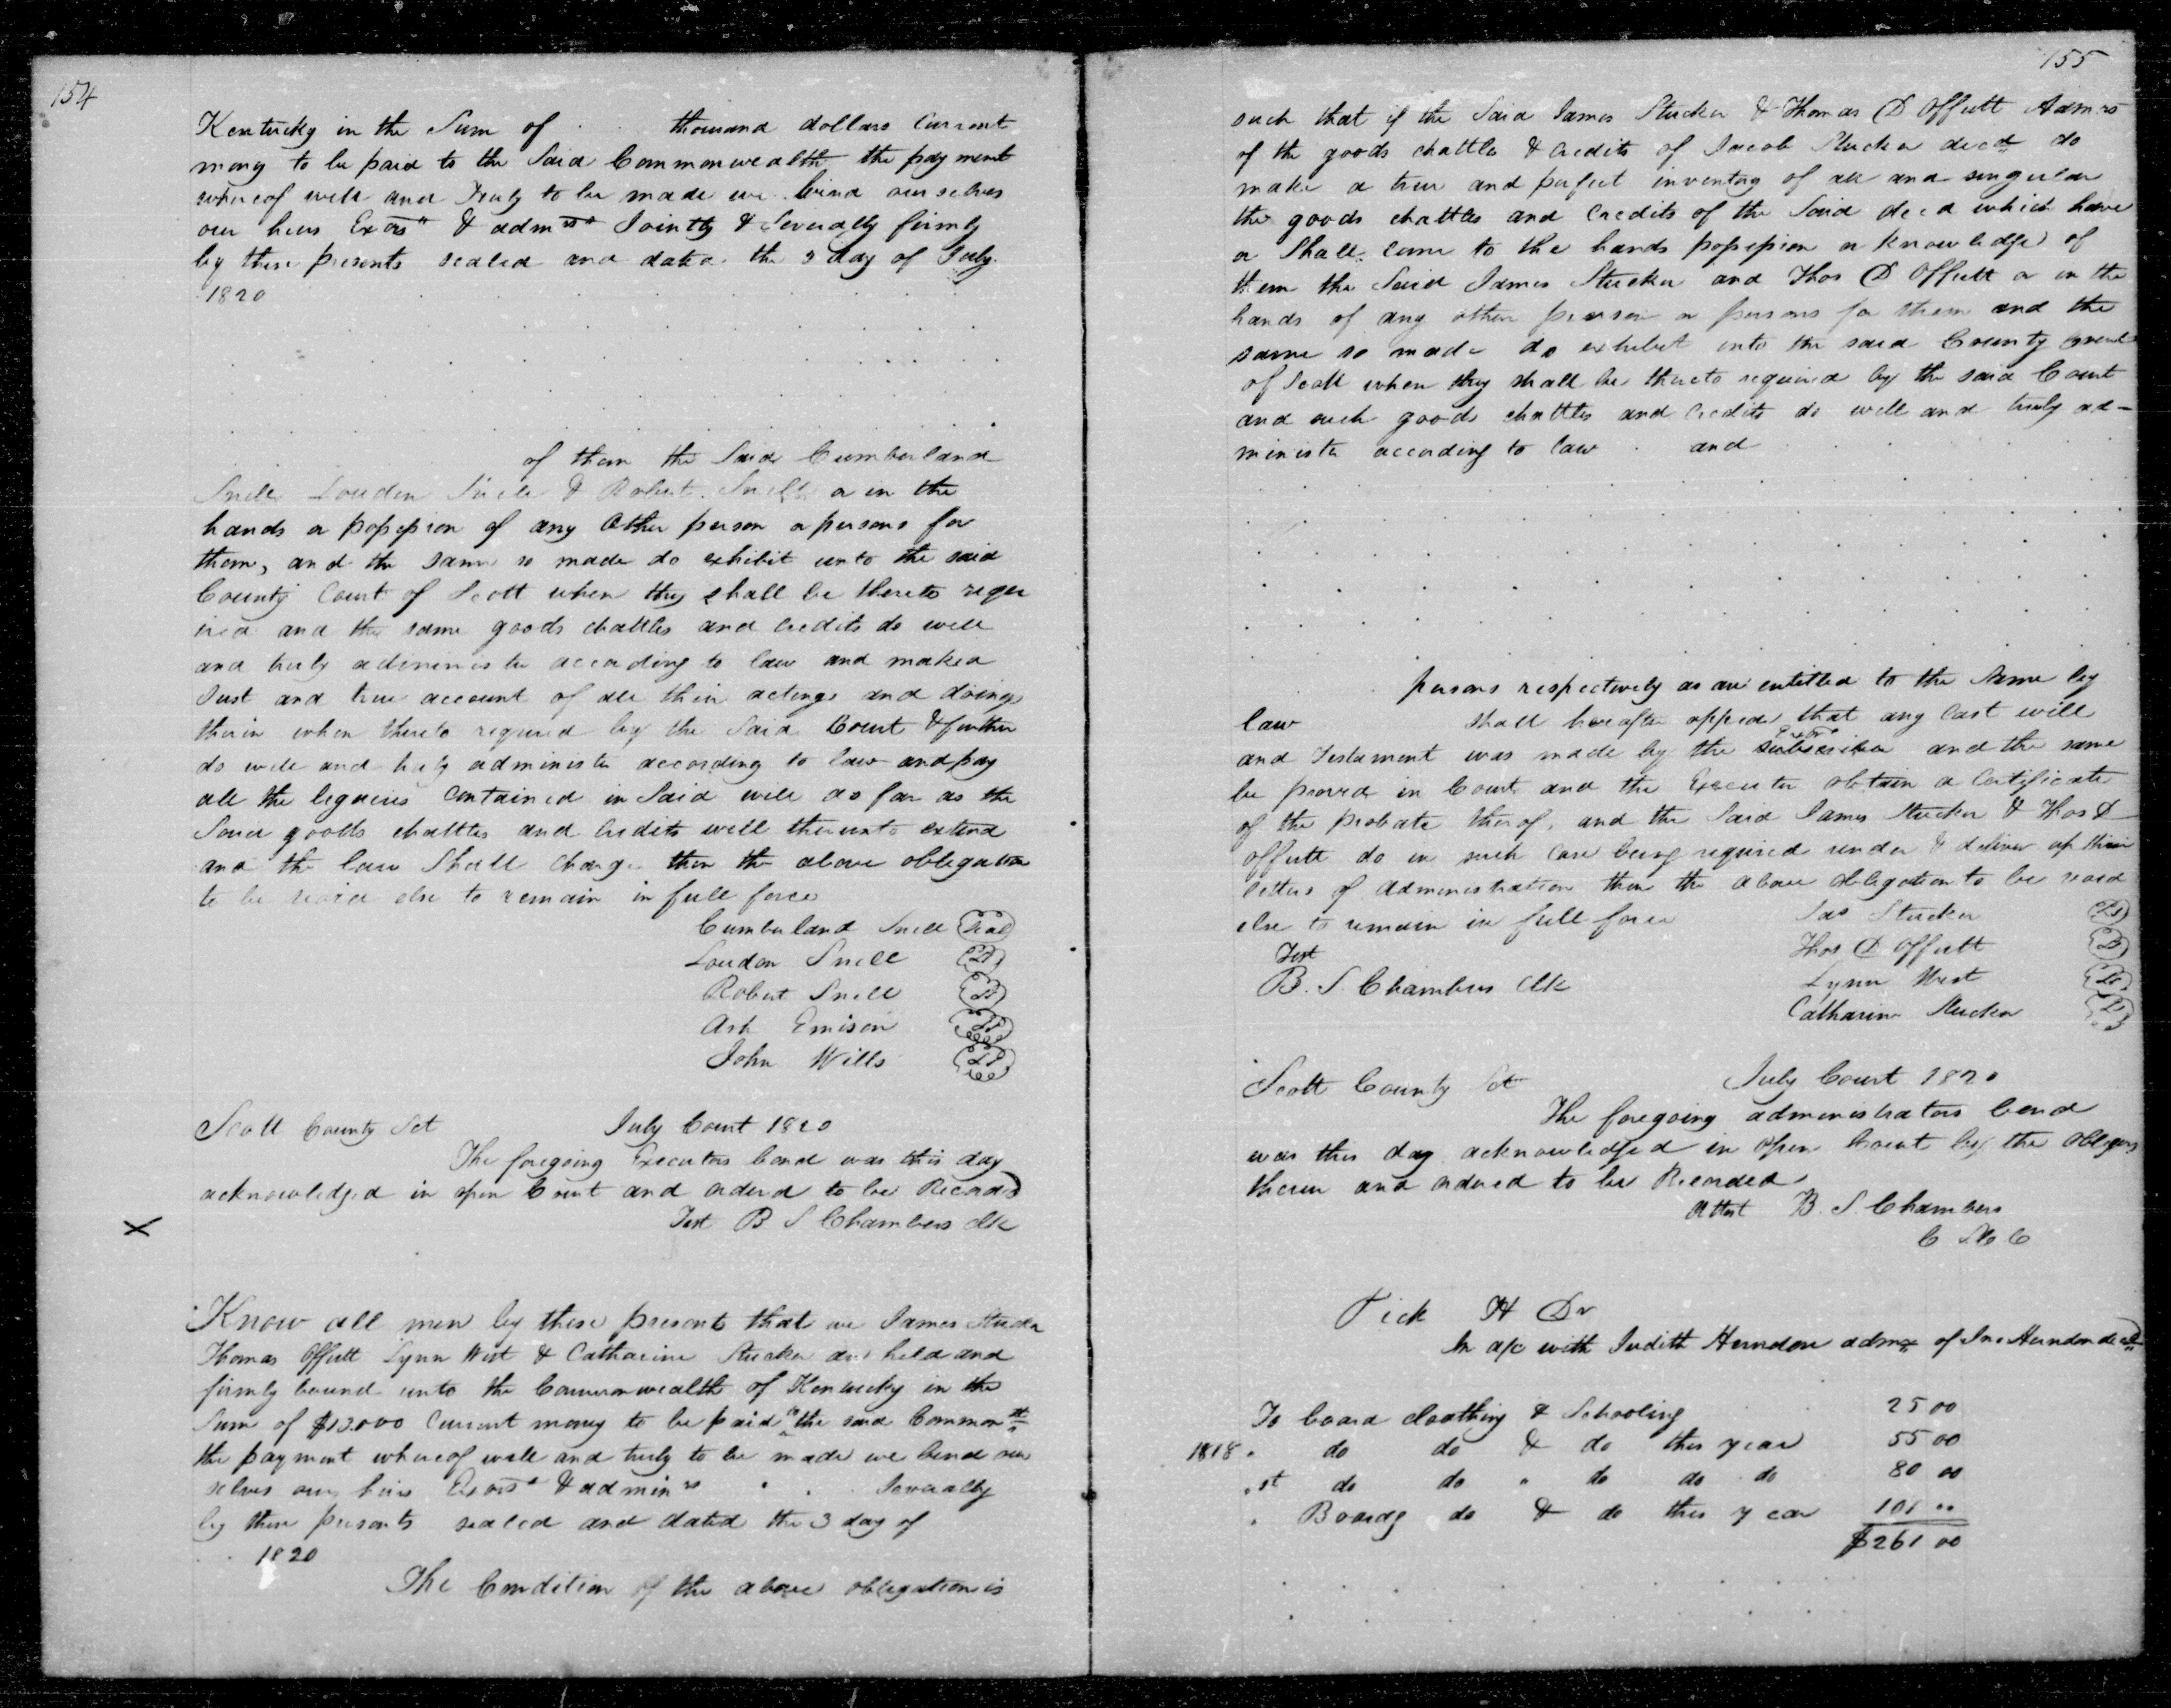 154
Kentucky in the Sum of thousand dollars Current
mony to be paid to the Said Commonwealth the payment
whereof well and Truly to be made we bind our selves
our heirs Exors & admrs Jointly & Severally firmly
by these presents sealed and dated the 3 day of July
1820
of them the Said Cumberland
Snell Loudon Snell & Robert Snell or in the
hands or possession of any Other person or persons for
them, and the same so made do exhibit unto the said
County Court of Scott when they shall be thereto requ
ired and the same goods chattles and credits do well
and truly administer according to law and make a
Just and true account of all their actings and doings
therein when thereto required by the Said Court & further
do well and truly administer according to law and pay
all the legacies Contained in Said will as far as the
Said goods chattles and credits will thereunto extend
and the law Shall charge then the above obligation
to be void else to remain in full force
Cumberland Snell Seal
Loudon Snell LS
Robert Snell LS
Ash Emison LS
John Wills LS
Scott County Sct July Court 1820
The foregoing Executors bond was this day
acknowledged in open Court and ordered to be Record
Test B S Chambers Clk
Know all men by these presents that we James Stucker
Thomas Offutt Lynn West & Catharine Stucker are held and
firmly bound unto the Commonwealth of Kentucky in the
Sum of $13.000 Current money to be paid to the said Common th
the payment whereof well and truly to be made we bind our
selves our heirs Exors & admin rs Severally
by these presents sealed and dated the 3 day of
1820
The Condition of the above obligation is
155
such that if the Said James Stucker & Thomas D Offutt Admrs
of the goods chattles & credits of Jacob Stucker decd do
make a true and perfect inventory of all and singular
the goods chattles and Credits of the Said decd which have
or Shall come to the hands possession or knowledge of
them the Said James Stucker and Thos D Offutt or in the
hands of any other person or persons for them and the
same so made do exhibit into the said County Court
of Scott when they shall be thereto required by the said Court
and such goods chattles and Credits do well and truly ad-
minister according to law and
persons respectively as are entitled to the same by
law shall hereafter appear that any last will
and Testament was made by the subscriber and the same
be proved in Court and the Executor obtain a Certificate
of the probate thereof, and the Said James Stucker & Thos D
Offutt do in such Case being required render & deliver up their
letters of administration then the above obligation to be void
else to remain in full force Jas Stucker LS
Test Thos D Offutt LS
B. S. Chambers Clk Lynn West LS
Catharine Stucker LS
Scott County Sct July Court 1820
The foregoing administrators bond
was this day acknowledged in open Court by the obligors
therein and ordered to be Recorded
Attest B. S. Chambers
C S C C
Pick H Dr
In a/c with Judith Herndon admx of Jno Herndon decd
To board cloathing & Schooling 25 00
1818 " do do & do this year 55 00
" st do do " do do do 80 00
" Boardg do & do this year 101 "
$261 00